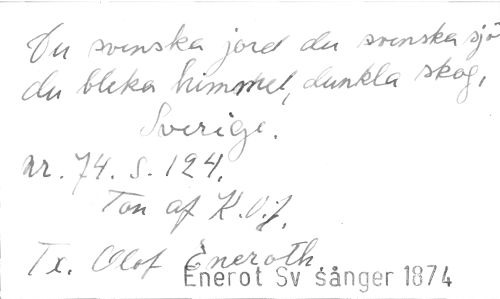 Du svenska jord du svenska sjö
du bleka himmel, dunkla skog,
Sverige.
nr. 74. s. 124.
Ton af K.V.J.
Tx. Olof Eneroth.
Enerot Sv sånger 1874